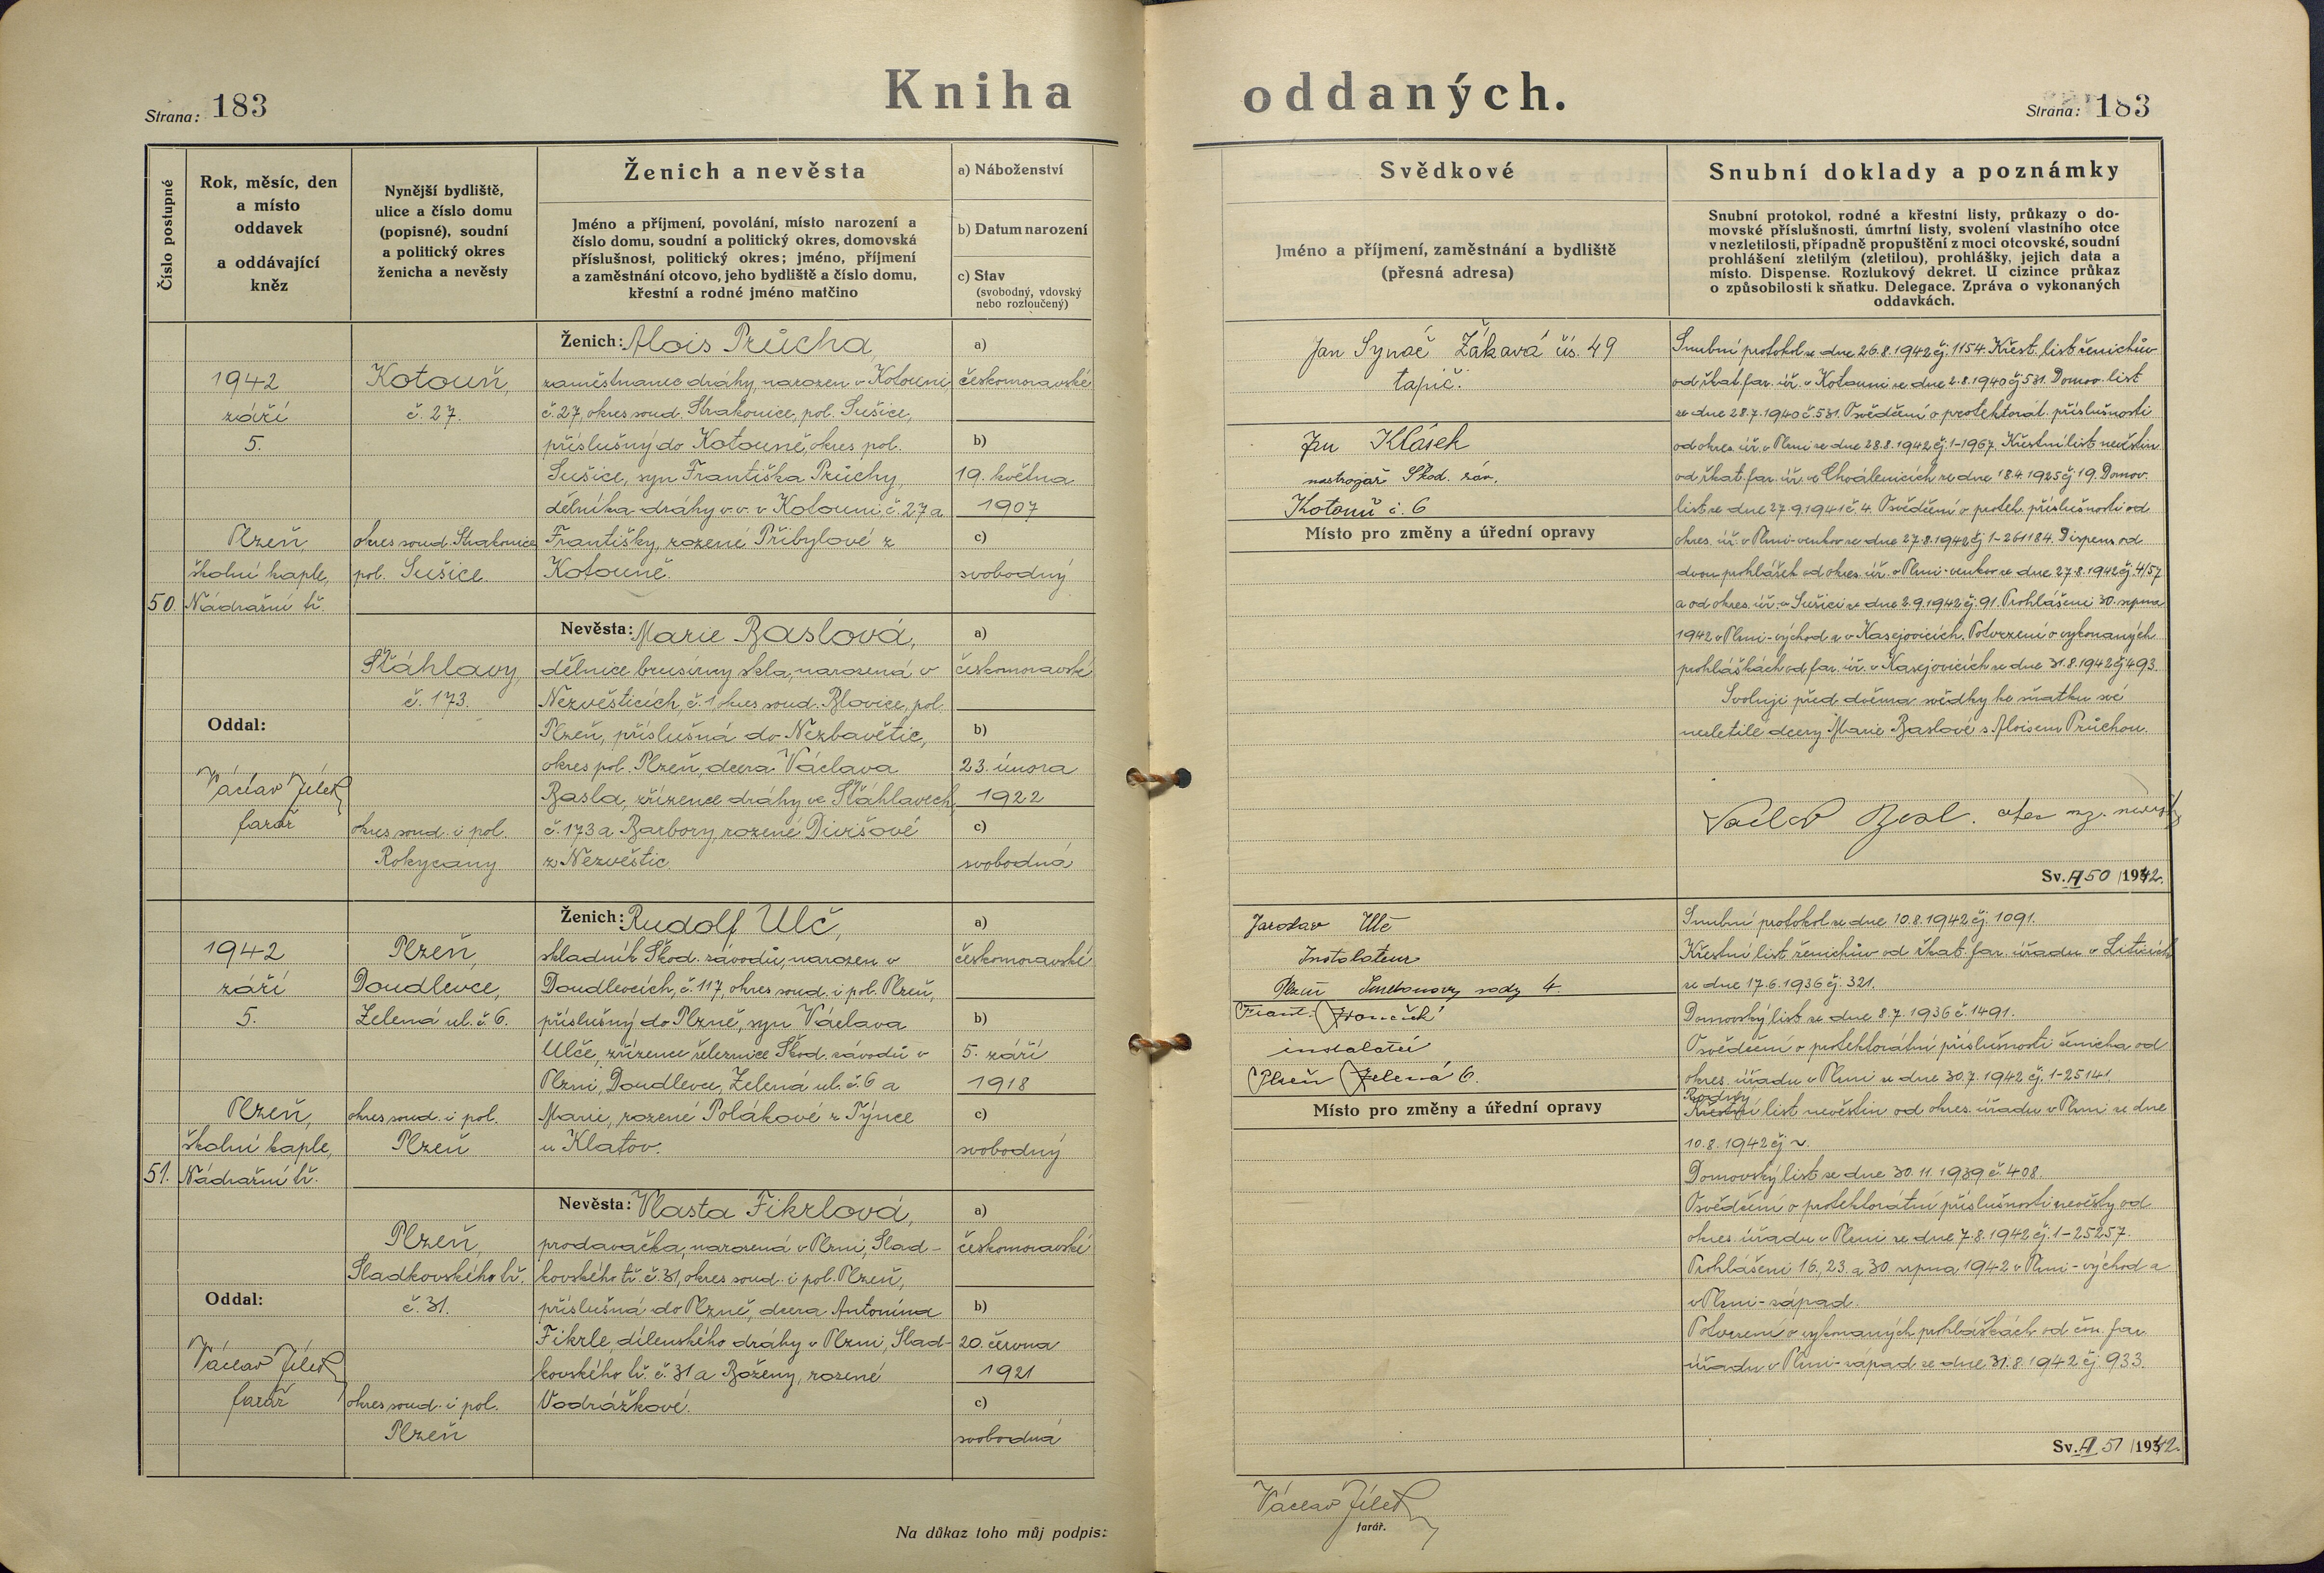 Kniha oddaných.
Strana: 183
Strana: 183
Číslo postupné
Rok, měsíc, den
a místo
oddavek
a oddávající
kněz
Nynější bydliště,
ulice a číslo domu
(popisné), soudní
a politický okres
ženicha a nevěsty
Ženich a nevěsta
Jméno a příjmení, povolání, místo narození a
číslo domu, soudní a politický okres, domovská
příslušnost, politický okres; jméno, příjmení
a zaměstnání otcovo, jeho bydliště a číslo domu,
křestní a rodné jméno matčino
a) Náboženství
b) Datum narození
c) Stav
(svobodný, vdovský
nebo rozloučený)
Svědkové
Jméno a příjmení, zaměstnání a bydliště
(přesná adresa)
Snubní doklady a poznámky
Snubní protokol, rodné a křestní listy, průkazy o do-
movské příslušnosti, úmrtní listy, svolení vlastního otce
v nezletilosti, případně propuštění z moci otcovské, soudní
prohlášení zletilým (zletilou), prohlášky, jejich data a
místo. Dispense. Rozlukový dekret. U cizince průkaz
o způsobilosti k sňatku. Delegace. Zpráva o vykonaných
oddavkách.
50.
1942
září
5.
Plzeň,
školní kaple,
Nádražní tř.
Oddal:
Václav Jílek
farář
Kotouň,
č. 27.
okres soud. Strakonice
pol. Sušice
Šťáhlavy,
č. 173.
okres soud. i pol.
Rokycany
Ženich: Alois Průcha,
zaměstnanec dráhy, narozen v Kotouni,
č. 27, okres soud. Strakonice, pol. Sušice,
příslušný do Kotouně, okres pol.
Sušice, syn Františka Průchy,
dělníka dráhy v. v. v Kotouni č. 27 a
Františky, rozené Přibylové z
Kotouně.
a)
českomoravské
b)
19. května
1907
c)
svobodný
Nevěsta: Marie Baslová,
dělnice brusírny skla, narozená v
Nezvěsticích, č. 1, okres soud. Blovice, pol.
Plzeň, příslušná do Nezbavětic,
okres pol. Plzeň, dcera Václava
Basla, zřízence dráhy ve Šťáhlavech,
č. 173 a Barbory, rozené Divišové
z Nezvěstic.
a)
českomoravské
b)
23. února
1922
c)
svobodná
Jan Synač Žákavá čís. 49
tapič.
Jan Klásek
nástrojař Škod. záv.
Kotouň č. 6
Místo pro změny a úřední opravy
Snubní protokol ze dne 26.8.1942 čj. 1154. Křest. list ženichův
od řkat. far. úř. v Kotouni ze dne 2.8.1940 čj 531. Domov. list
ze dne 28.7.1940 č. 531. Osvědčení o protektorát. příslušnosti
od okres. úř. v Plzni ze dne 28.8.1942 čj. 1-1967. Křestní list nevěstin
od řkat. far. úř. ve Chválenicích ze dne 18.4.1925 čj. 19. Domov.
list ze dne 27.9.1941 č. 4. Osvědčení o protek. příslušnosti od
okres. úř. v Plzni-venkov ze dne 27.8.1942 čj 1-261184. Dispens od
dvou prohlášek od okres. úř. v Plzni-venkov ze dne 27.8.1942 čj. 4/57
a od okres. úř. v Sušici ze dne 2.9.1942 čj. 91. Prohlášeni 30. srpna
1942 v Plzni-východ a v Kasejovicích. Potvrzení o vykonaných
prohláškách od far. úř. v Kasejovicích ze dne 31.8.1942 čj 493.
Svoluji před dvěma svědky ke sňatku své
nezletilé dcery Marie Baslové s Aloisem Průchou.
Václav Basl. otec
Sv. A 50 /1942.
51.
1942
září
5.
Plzeň,
školní kaple,
Nádražní tř.
Oddal:
Václav Jílek
farář
Plzeň,
Doudlevce,
Zelená ul. č. 6.
okres soud. i pol.
Plzeň
Plzeň,
Sladkovského tř.
č. 31.
okres soud. i pol.
Plzeň
Ženich: Rudolf Ulč,
skladník Škod. závodů, narozen v
Doudlevcích, č. 117, okres soud. i pol. Plzeň,
příslušný do Plzně, syn Václava
Ulče, zřízence železnice Škod. závodů v
Plzni, Doudlevce, Zelená ul. č. 6 a
Marie, rozené Polákové z Týnce
u Klatov.
a)
českomoravské
b)
5. září
1918
c)
svobodný
Nevěsta: Vlasta Fikrlová,
prodavačka, narozená v Plzni, Slad-
kovského tř. č. 31, okres soud. i pol. Plzeň,
příslušná do Plzně, dcera Antonína
Fikrle, dílenského dráhy v Plzni, Slad-
kovského tř. č. 31 a Boženy, rozené
Vodrážkové.
a)
českomoravské
b)
20. června
1921
c)
svobodná
Jaroslav Ulč
Instalateur
Plzeň Smetanovy sady 4.
Frant.
instalatér
Plzeň Zelená 6.
Místo pro změny a úřední opravy
Snubní protokol ze dne 10.8.1942 čj. 1091.
Křestní list ženichův od řkat. far. úřadu v Liticích
ze dne 17.6.1936 čj. 321.
Domovský list ze dne 8.7.1936 č. 1491.
Osvědčení o protektorátní příslušnosti ženicha od
okres. úřadu v Plzni ze dne 30.7.1942 čj. 1-25141.
Rodný
Křestní list nevěstin od okres. úřadu v Plzni ze dne
10.8.1942 čj ~.
Domovský list ze dne 30.11.1939 č. 408.
Osvědčení o protektorátní příslušnosti nevěsty od
okres. úřadu v Plzni ze dne 7.8.1942 čj. 1-25257.
Prohlášeni 16., 23. a 30. srpna 1942 v Plzni-východ a
v Plzni-západ.
Potvrzení o vykonaných prohláškách od čm. far.
úřadu v Plzni-západ ze dne 31.8.1942 čj. 933.
Sv. A 51 /1942.
Na důkaz toho můj podpis:
Václav Jílek
farář.